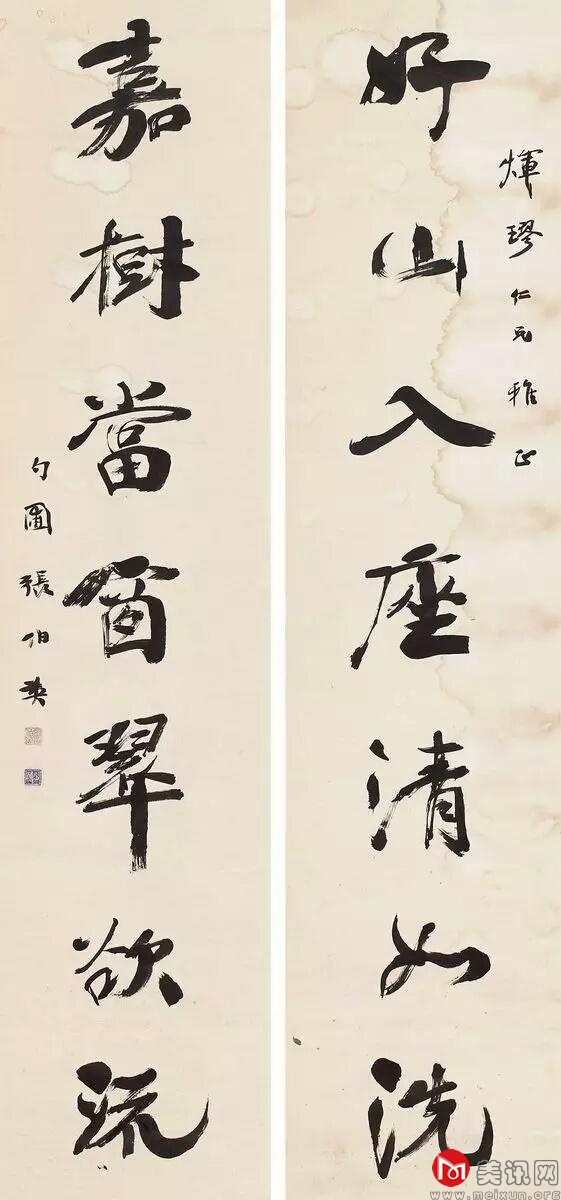 好山入座清如洗
煇璆仁兄雅正
嘉樹當窗翠欲流
勺圃張伯英
美讯网
www.meixun.org